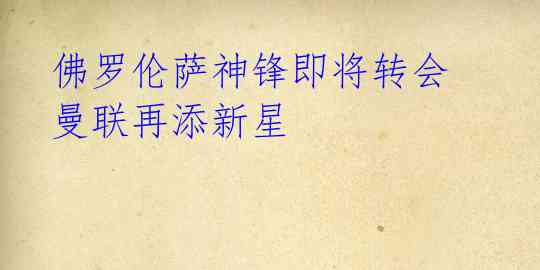 佛罗伦萨神锋即将转会
曼联再添新星